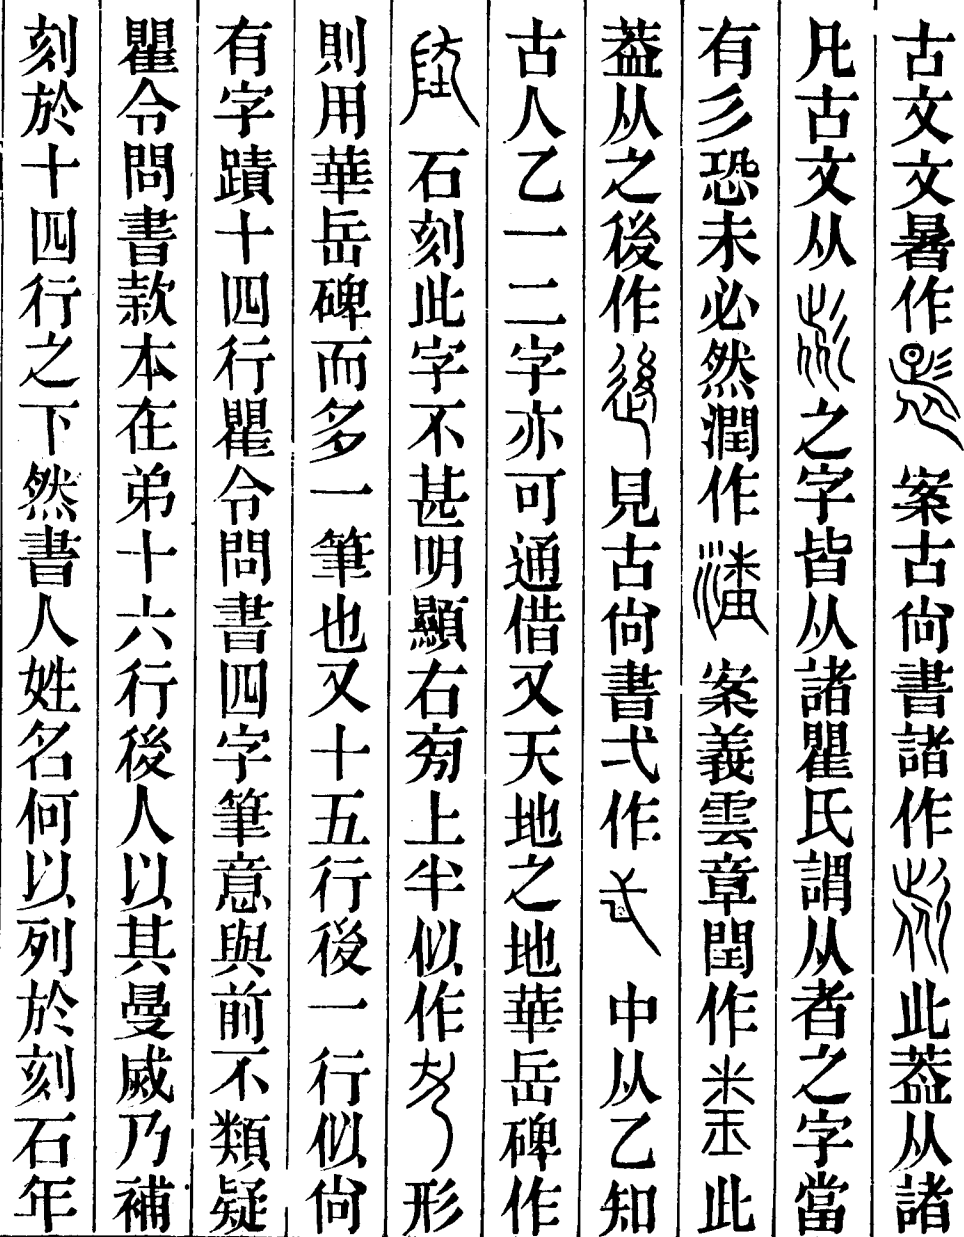 古文文暑作案古尙書諸作此葢从諸
凡古文从之字皆从諸瞿氏謂从者之字當
有彡恐未必然潤作案義雲章閏作此
葢从之後作見古尙書弌作中从乙知
古人乙一二字亦可通借又天地之地華岳碑作
石刻此字不甚明顯右旁上半似作形
則用華岳碑而多一筆也又十五行後一行似尙
有字蹟十四行瞿令問書四字筆意與前不類疑
瞿令問書款本在弟十六行後人以其曼威乃補
刻於十四行之下然書人姓名何以列於刻石年